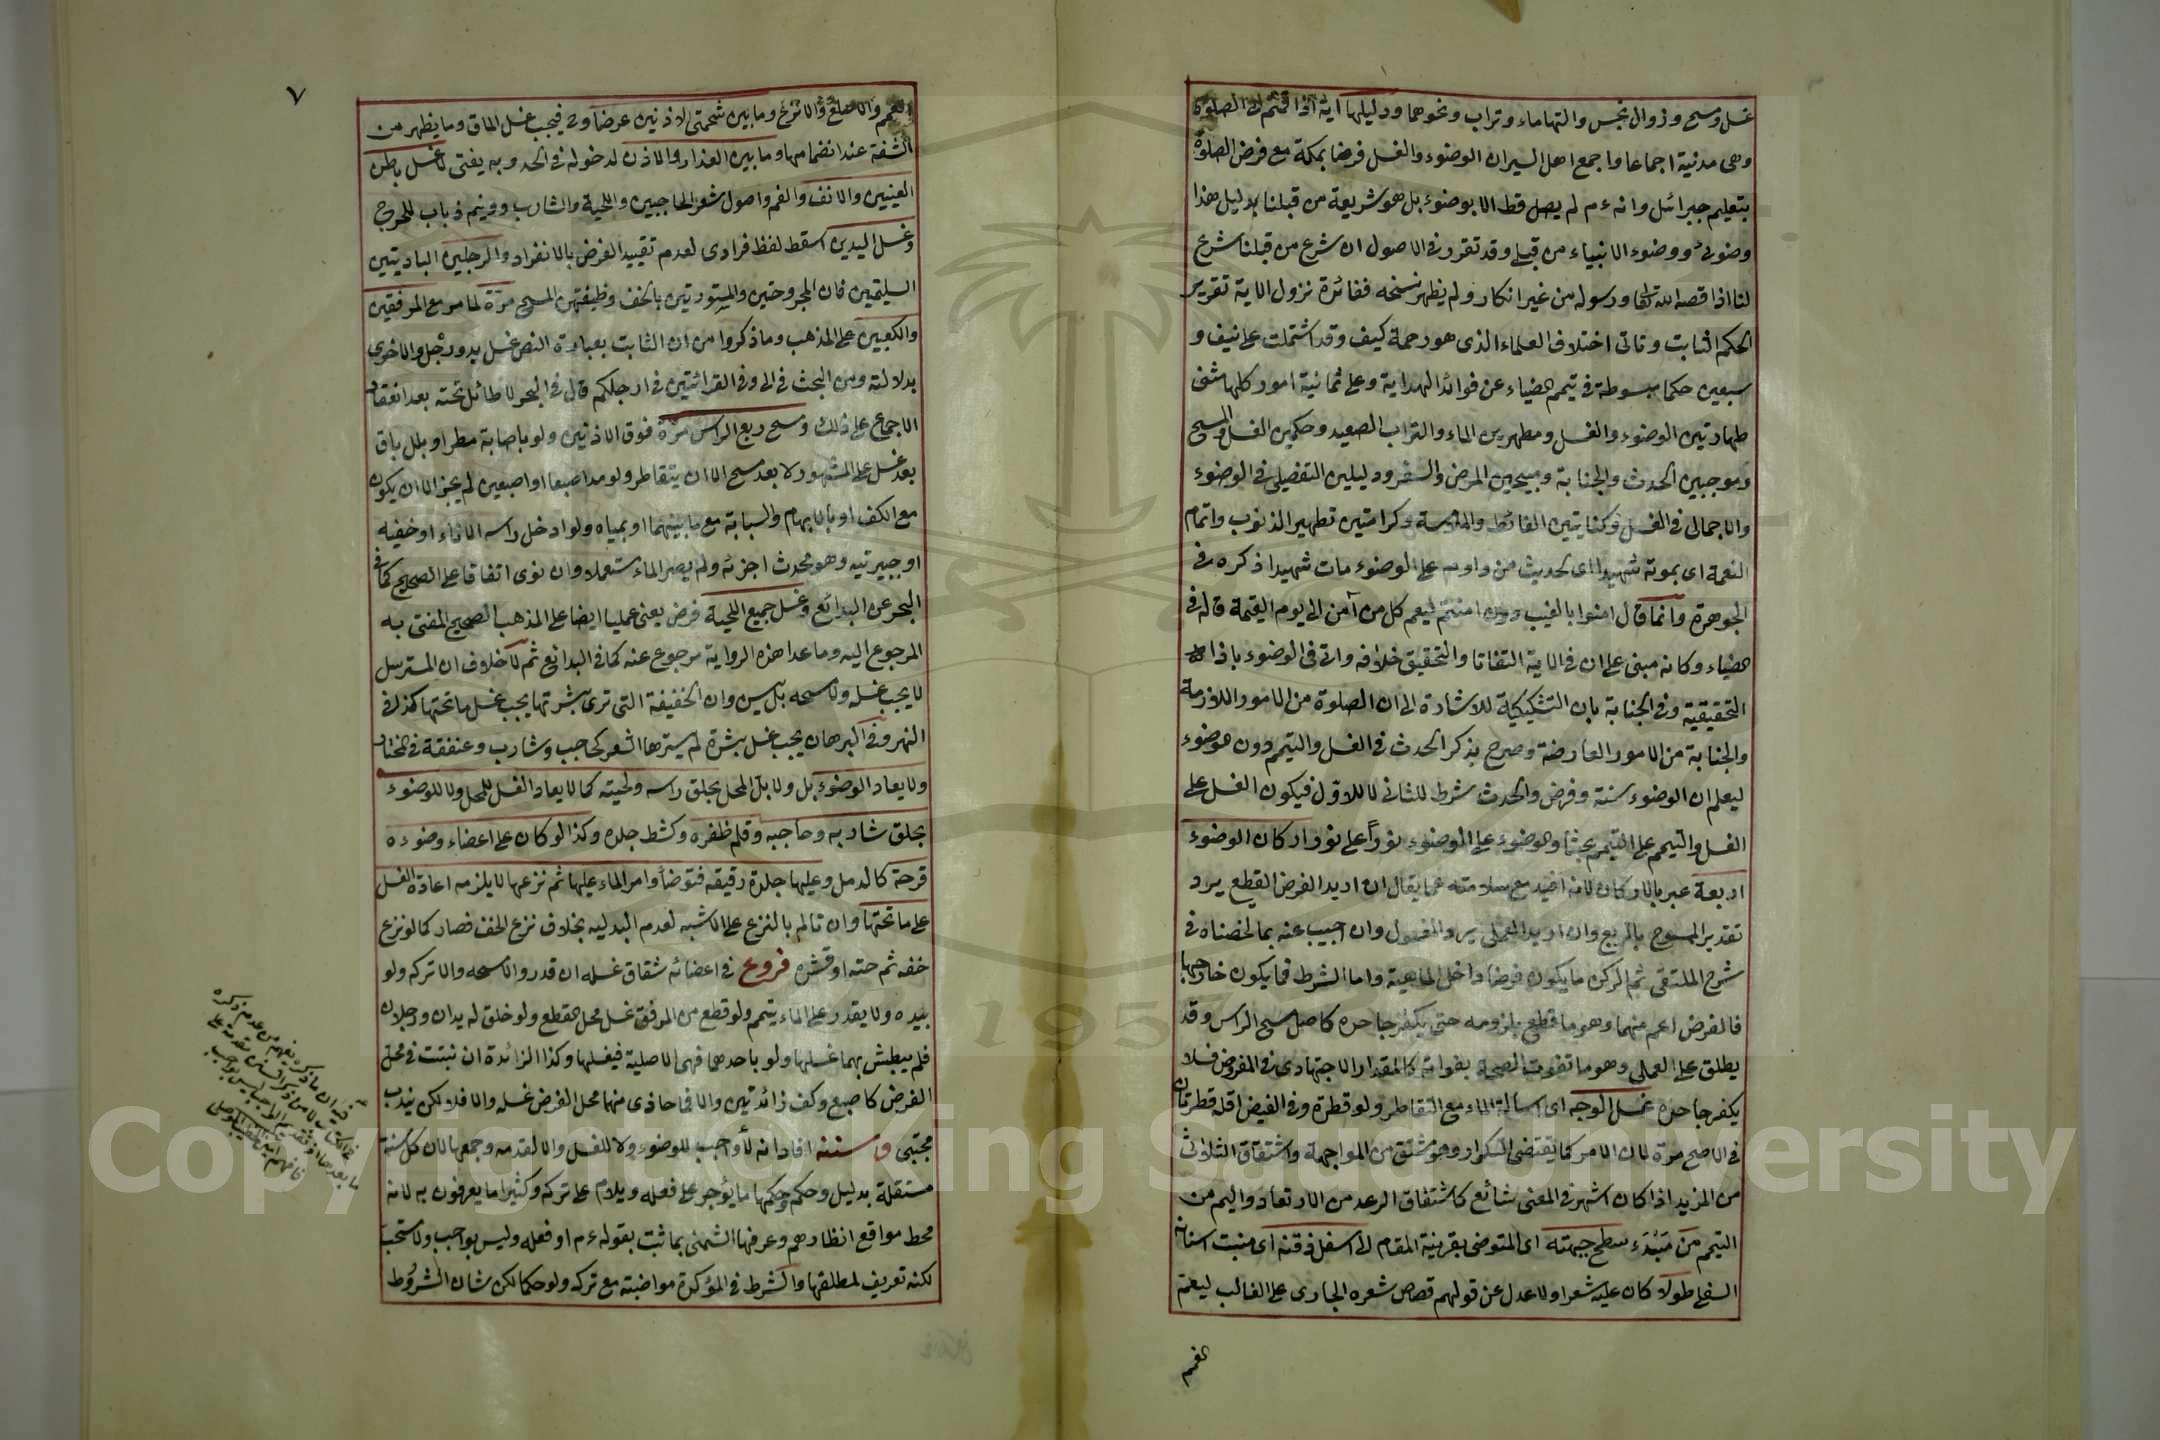 غسل ومسح وزوال نجس والتهاماء وتراب ونحوهما ودليلها اية اذا قمتم الى الصلوة
وهى مدنية اجماعا واجمع اهل السير ان الوضوء والغسل فرضا بمكة مع فرض الصلوة
بتعليم جبرائل وانه ءم لم يصل قط الا بوضوء بل هو شريعة من قبلنا بدليل هذا
وضوئى ووضوء الانبياء من قبلى وقد تقرر فى الاصول ان شرع من قبلنا شرع
لنا اذا قصه الله تعالى ورسوله من غير انكار ولم يظهر نسخه ففائدة نزول الاية تقرير
الحكم الثابت وتاتى اختلاف العلماء الذى هو رحمة كيف وقد اشتملت على نيف و
سبعين حكما مبسوطة فى تيمم الضياء عن فوائد الهداية وعلى ثمانية امور كلها مثنى
طهارتين الوضوء والغسل ومطهرين الماء والتراب الصعيد وحكمين الغسل والمسح
وموجبين الحدث والجنابة ومبيحين المرض والسفر ودليلين التفصيلى فى الوضوء
والاجمالى فى الغسل وكنايتين الغائط والملامسة وكرامتين تطهير الذنوب واتمام
النعمة اى بموته شهيدا اى لحديث من داوم على الوضوء مات شهيدا ذكره فى
الجوهرة وانما قال امنوا بالغيب دون امنتم ليعم كل من آمن الى يوم القيمة قاله فى
الضياء وكانه مبنى على ان فى الاية التفاتا والتحقيق خلافه واتى فى الوضوء باذا
التحقيقية وفى الجنابة بان التشكيكية للاشارة الى ان الصلوة من الامور اللازمة
والجنابة من الامور العارضة وصرح بذكر الحدث فى الغسل والتيمم دون الوضوء
ليعلم ان الوضوء سنة وفرض والحدث شرط للثانى لا للاول فيكون الغسل على
الغسل والتيمم على التيمم عبثا والوضوء على الوضوء نورا على نور اركان الوضوء
اربعة عبر بالاركان لانه افيد مع سلامته عما يقال ان اريد الفرض القطعى يرد
تقدير الممسوح بالربع وان اريد العملى يرد المغسول وان اجيب عنه بما لخصناه فى
شرح الملتقى ثم الركن ما يكون فرضا داخل الماهية واما الشرط فما يكون خارجها
فالفرض اعم منهما وهو ما قطع بلزومه حتى يكفر جاحده كاصل مسح الراس وقد
يطلق على العملى وهو ما تفوت الصحة بفواته كالمقدار الاجتهادى فى المفروض فلا
يكفر جاحده غسل الوجه اى اسالة الماء مع التقاطر ولو قطرة وفى الفيض اقله قطرتان
فى الاصح مرة لان الامر كما يقتضى التكرار وهو مشتق من المواجهة واشتقاق الثلاثى
من المزيد اذا كان اشهر فى المعنى شائع كاشتقاق الرعد من الارتعاد واليم من
التيمم من مبدء سطح جبهته اى المتوضى بقرينة المقام الى اسفل ذقنه اى منبت اسنانه
السفلى طولا كان عليه شعر اولا عدل عن قولهم قصاص شعره الجارى على الغالب ليعم
الغمم
٧
الغمم والاصلع والانزع وما بين شحمتى الاذنين عرضا وح فيجب غسل الماق وما يظهر من
الشفة عند انضمامها وما بين العذار والاذن لدخوله فى الحد وبه يفتى لا غسل باطن
العينين والانف والفم واصول شعر الحاجبين واللحية والشارب وونيم ذباب للحرج
وغسل اليدين اسقط لفظ فرادى لعدم تقييد الفرض بالانفراد والرجلين الباديتين
السليمتين فان المجروحتين والمستورتين بالخف وظيفتهن المسح مرة لما مر مع المرفقين
والكعبين على المذهب وما ذكروا من ان الثابت بعبارة النص غسل يد ورجل والاخرى
بدلالته ومن البحث فى الى وفى القرائتين فى ارجلكم قال فى البحر لا طائل تحته بعد انعقاد
الاجماع على ذلك ومسح ربع الراس مرة فوق الاذنين ولو باصابة مطر او بلل باق
بعد غسل على المشهور لا بعد مسح الا ان يتقاطر ولو مد اصبعا او اصبعين لم يجز الا ان يكون
مع الكف او بالابهام والسبابة مع ما بينهما او بمياه ولو ادخل راسه الاناء او خفيه
او جبيرتيه وهو محدث اجزئه ولم يصر الماء مستعملا وان نوى اتفاقا على الصحيح كما فى
البحر عن البدائع وغسل جميع اللحية فرض يعنى عمليا ايضا على المذهب الصحيح المفتى به
المرجوع اليه وما عدا هذه الرواية مرجوع عنه كما فى البدائع ثم لا خلاف ان المسترسل
لا يجب غسله ولا مسحه بل يسن وان الخفيفة التى ترى بشرتها يجب غسل ما تحتها كذا فى
النهر وفى البرهان يجب غسل بشرة لم يسترها الشعر كحاجب وشارب وعنفقة فى المختار
ولا يعاد الوضوء بل ولا بل المحل بحلق راسه ولحيته كما لا يعاد الغسل للمحل ولا للوضوء
بحلق شاربه وحاجبه وقلم ظفره وكشط جلده وكذا لو كان على اعضاء وضوءه
قرحة كالدمل وعليها جلدة رقيقه فتوضأ وامر الماء عليها ثم نزعها لا يلزمه اعادة الغسل
على ما تحتها وان تالم بالنزع على الاشبه لعدم البدليه بخلاف نزع الخف فصار كما لو نزع
خفه ثم حته او قشره فروع فى اعضائه شقاق غسله ان قدر والا مسحه والا تركه ولو
بيده ولا يقدر على الماء يتيمم ولو قطع من المرفق غسل محل القطع ولو خلق له يدان ورجلان
فلم يبطش بهما غسلها ولو باحدهما فهى الاصلية فيغسلها وكذا الزائدة ان نبتت فى محل
الفرض كاصبع وكف زائدتين والا فما حاذى منها محل الفرض غسله والا فلا لكن يندب
مجتبى وسننه افاد انه لا واجب للوضوء ولا للغسل والا لقدمه وجمعها لان كل سنة
مستقلة بدليل وحكم وحكمها ما يؤجر على فعله ويلام على تركه وكثيرا ما يعرفون به لانه
محط مواقع انظارهم وعرفها الشمنى بما ثبت بقوله ءم او فعله وليس بواجب ولا مستحب
لكنه تعريف لمطلقها والشرط فى المؤكدة مواضبته مع تركه ولو حكما لكن شان الشروط
Copyright © King Saud University
1957